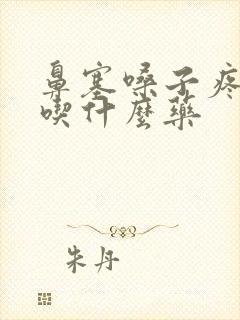 鼻塞嗓子疼
喫什麼藥
朱丹